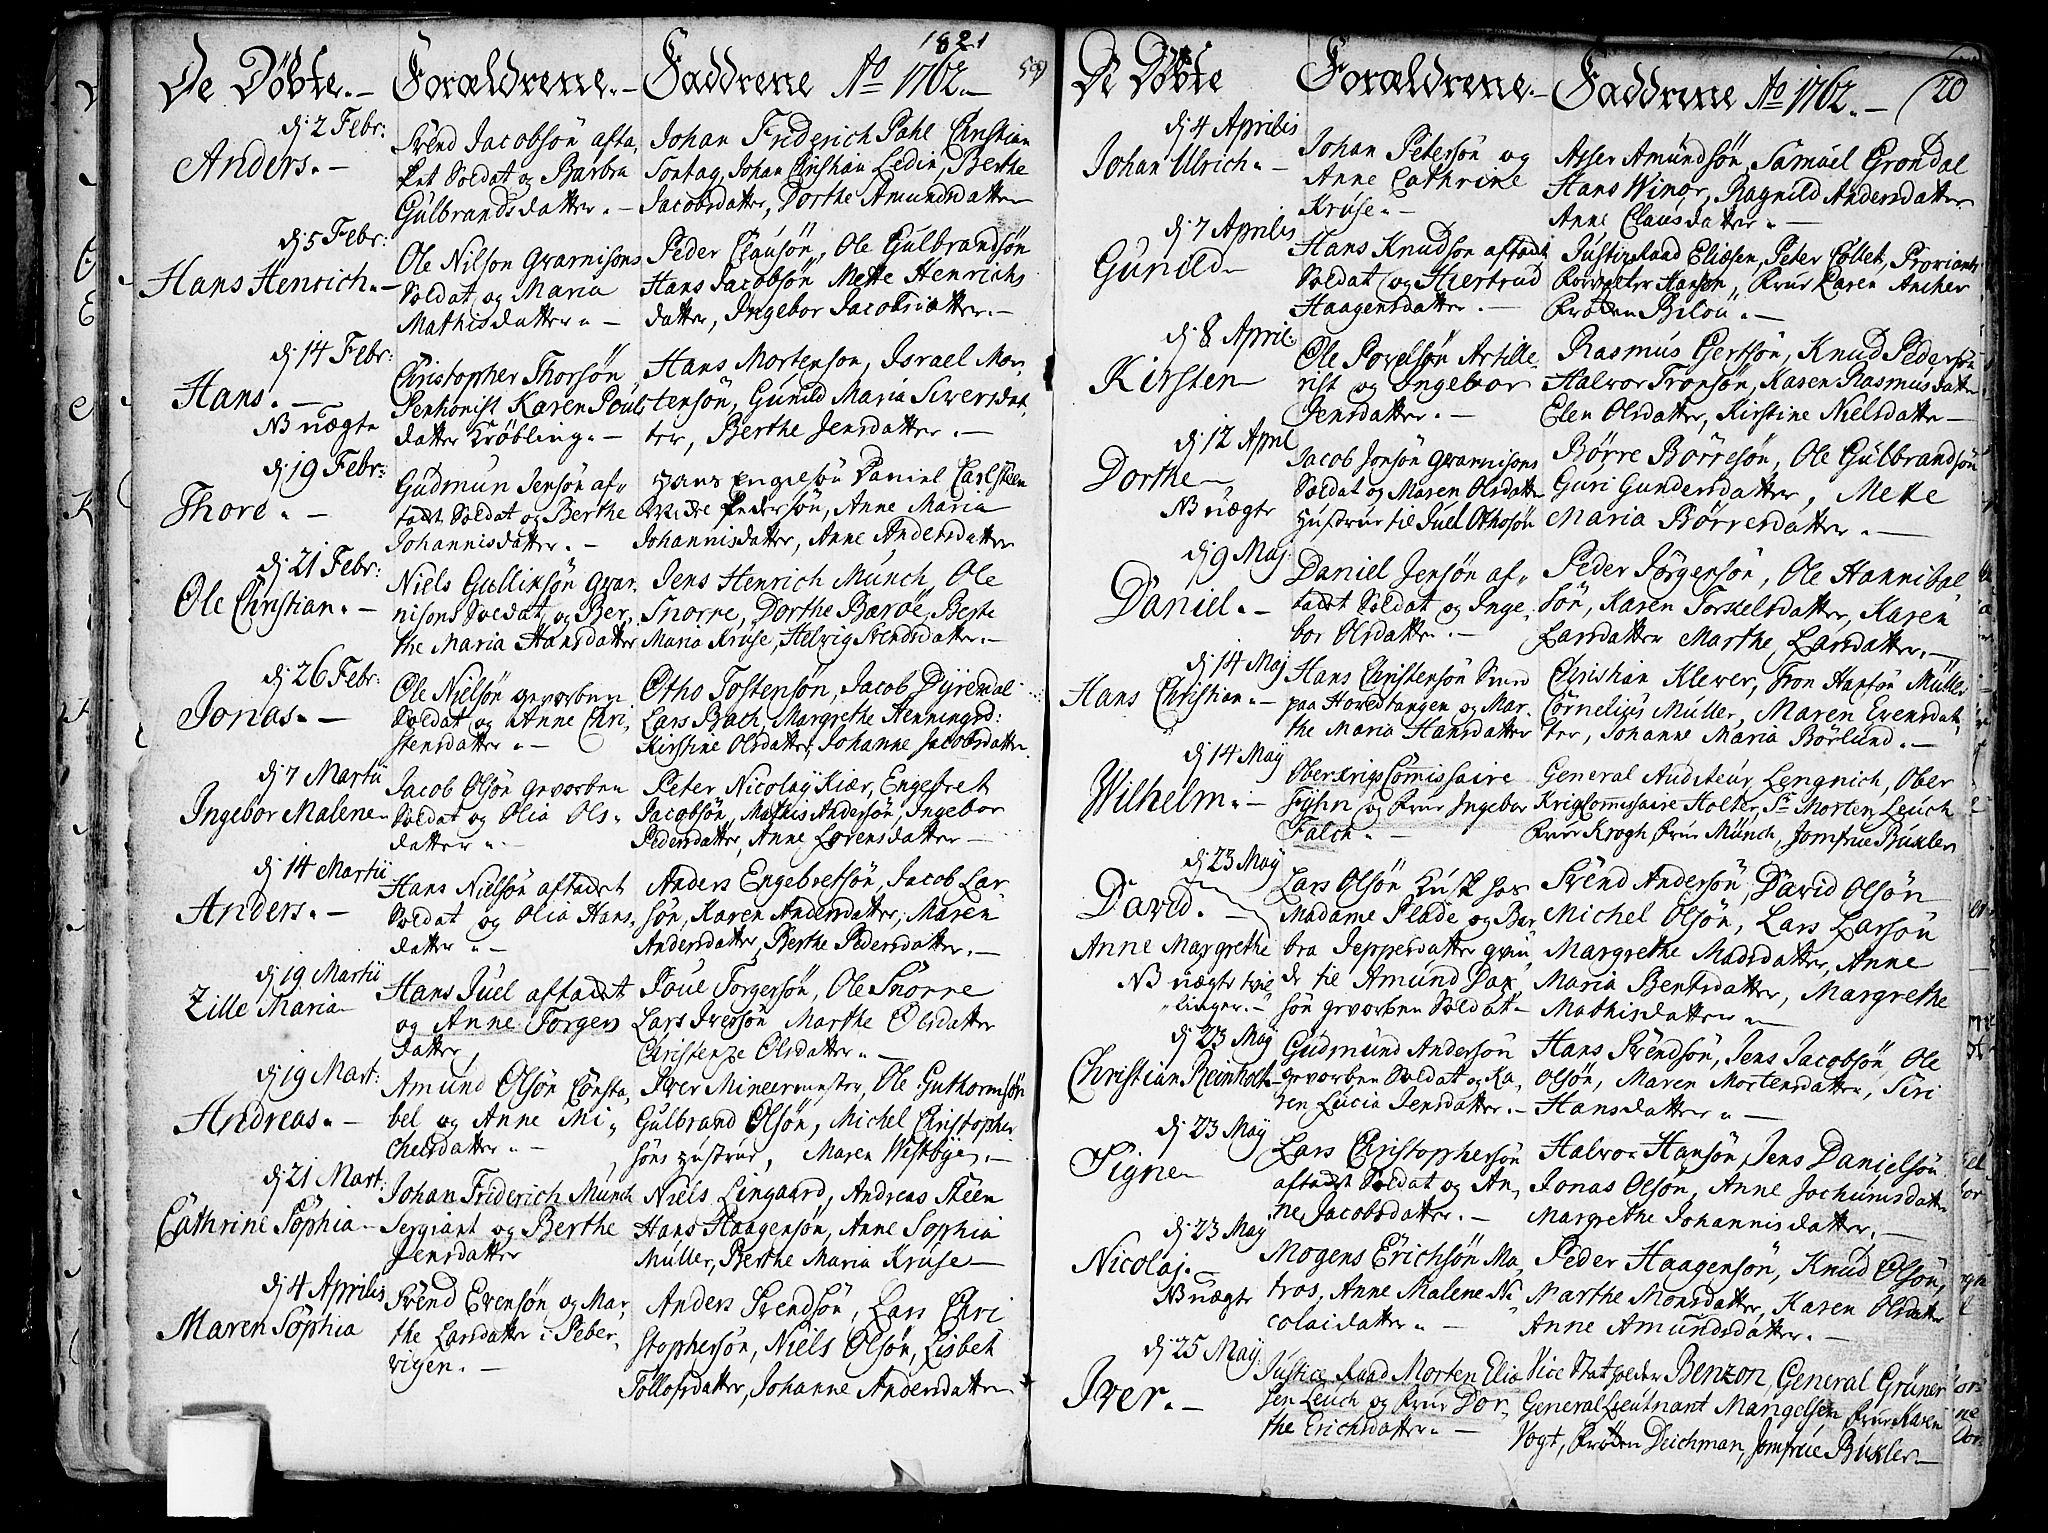 1821
59
De Döbte. Forældrene. Faddrene Ao 1762.
dj 2 Febr:
Anders.
Svend Jacobsön afta,
ket Soldat og Barbra
Gulbrandsdatter.
Johan Friderich Pahl Christian
Sontag, Johan Christian Ledin, Berthe
Jacobsdatter, Dorthe Amundsdatter
dj 5 Febr:
Hans Henrich.
Ole Nilson Gvarnisons
Soldat og Maria
Mathisdatter.
Peder Clausön, Ole Gulbrandsön
Hans Jacobsön Mette Henrichs
datter, Ingebor Jacobsdatter.
dj 14 Febr:
Hans.
NB uægte
Christopher Thorsön
Pentionist Karen Pouls
datter Kröbling.
Hans Mortenson, Israel Mor,
tensön, Gunild Maria Siversdat,
ter, Berthe Jensdatter.
dj 19 Febr:
Thore.
Gudmun Jensön af,,
tadt Soldat og Berthe
Johannisdatter.
Hans Engelsön Daniel Carlsteen
Pedersön, Anne Maria
Johannisdatter, Anne Andersdatter
dj 21 Febr:
Ole Christian.
Niels Gullikson Gvar,
nisons Soldat og Ber,
the Maria Hansdatter
Jens Henrich Munch, Ole
Snorre, Dorthe Baröe, Berte
Maria Kruse, Helvig Svendsdatter.
dj 26 Febr:
Jonas.
Ole Nielsön gevorben
Soldat og Anne Chri,
stensdatter
Otho Tostensön, Jacob Dyrendal
Lars Brach, Margrethe Henningsd:
Kirstine Olsdatter, Johanne Jacobsdatter
dj 7 Martii
Ingebor Malene
Jacob Olsön gevorben
Soldat og Olia Ols
datter
Peter Nicolay Kiær, Engebret
Jacobsön, Mathis Andersön, Ingebor
Pedersdatter, Anne Lorensdatter
dj 14 Martii
Anders.
Hans Nielsön aftadet
Soldat og Olia Hans,
datter
Anders Engebretsön, Jacob Lar
sön, Karen Andersdatter, Maren
Andersdatter, Berthe Pedersdatter.
dj 19 Martii
Zille Maria
Hans Juel aftadet
og Anne Torgers
datter
Poul Torgersön, Ole Snorre
Lars Iversön Marthe Olsdatter
Christenze Olsdatter
dj 19 Mart:
Andreas.
Amund Olsön Consta,
bel og Anne Mi,
chelsdatter
Iver Mineermester, Ole Guthormsön
Gulbrand Olsön, Michel Christopher
söns Hustrue, Maren Westbye.
dj 21 Mart:
Cathrine Sophia
Johan Friderich Munch
Sergiant og Berthe
Jensdatter
Niels Lingaard, Andreas Steen
Hans Haagensön, Anne Sophia
Müller, Berthe Maria Kruse
dj 4 Aprilis
Maren Sophia
Svend Evensön og Mar,
the Larsdatter i Peber,
vigen.
Anders Svendsön, Lars Chri
stophersön, Niels Olsön, Lisbet
Tollofsdatter, Johanne Andersdatter
De Döbte Forældrene. Faddrene Ao 1762.
20
dj 4 Aprilis
Johan Ulrich.
Johan Petersön og
Anne Cathrine
Kruse.
Asser Amundsön, Samuel Grondal
Hans Winor, Ragnild Andersdatter
Anne Clausdatter.
dj 7 Aprilis
Gunild
Hans Knudsön aftadt
Soldat og Hiertrud
Haagensdatter.
Justiz Raad Eliesen, Peter Collet, Proviant
Forvalter Hanson, Frue Karen Ancher
Fröken Bilou.
dj 8 April:
Kirsten
Ole Povelsön Artille,
rist og Ingebor
Jensdatter.
Rasmus Gertsön, Knud Pedersön
Halvor Tronsön, Karen Rasmusdatter
Elen Olsdatter, Kirstine Nielsdatter
dj 12 April
Dorthe
NB uægte
Jacob Jonsön Gvarnisons
Soldat og Maren Olsdatter
Hustrue til Juel Othosön
Börre Börresön, Ole Gulbrandsön
Guri Gundersdatter, Mette
Maria Börresdatter.
dj 9 Maj
Daniel.
Daniel Jensön af,,
tadt Soldat og Inge,
bor Olsdatter.
Peder Jörgensön, Ole Hannibal
sön, Karen Torkelsdatter, Karen
Larsdatter Marthe Larsdatter.
dj 14 Maj
Hans Christian.
Hans Christensön Smed
paa Hovedtangen og Mar,
the Maria Hansdatter
Christian Klever, Tron Hansön Müller
Cornelius Müller, Maren Evensdat,
ter, Johanne Maria Börlund.
dj 14 May
Wilhelm.
Ober Krigs Commissaire
Fyhn og Frue Ingebor
Falch
General Auditeur Lengnich, Ober
Krigs Commissaire Holter, Sr Morten Leuch
Frue Krogh, Frue Munch, Jomfrue Buxler
dj 23 May
David.
Anne Margrethe
NB uægte tvil
linger.
Lars Olsön Kusk hos
Madame Plade og Bar,
bra Jeppesdatter qvin,
de til Amund
sön gevorben Soldat
Svend Andersön, David Olsön
Michel Olsön, Lars Larsön
Margrethe Madsdatter, Anne
Maria Bentsdatter, Margrethe
Mathisdatter
dj 23 May
Christian Reinholt
Gudmund Andersön
gevorben Soldat og Ka,
ren Lucia Jensdatter.
Hans Svendsön, Jens Jacobsön, Ole
Olsön, Maren Mortensdatter, Siri
Hansdatter
dj 23 May
Signe
Lars Christophersön
aftadt Soldat og An,
ne Jacobsdatter.
Halvor Hansön, Jens Danielsön
Jonas Olsön, Anne Jochumsdatter
Margrethe Johannisdatter.
dj 23 May
Nicolaj.
NB uægte
Mogens Erichsön Ma,
tros, Anne Malene Ni
colaidatter
Peder Haagensön, Knud Olsön,
Marthe Monsdatter, Karen Olsdatter
Anne Amundsdatter.
dj 25 May
Iver.
Justice Raad Morten Elie
sen Leuch og Frue Dor,
the Erichsdatter.
Vice Statholder Benzon, General Grüner
General Lieutnant Mangelsen Frue Karen
Vogt, Fröken Deichman, Jomfrue Buxler